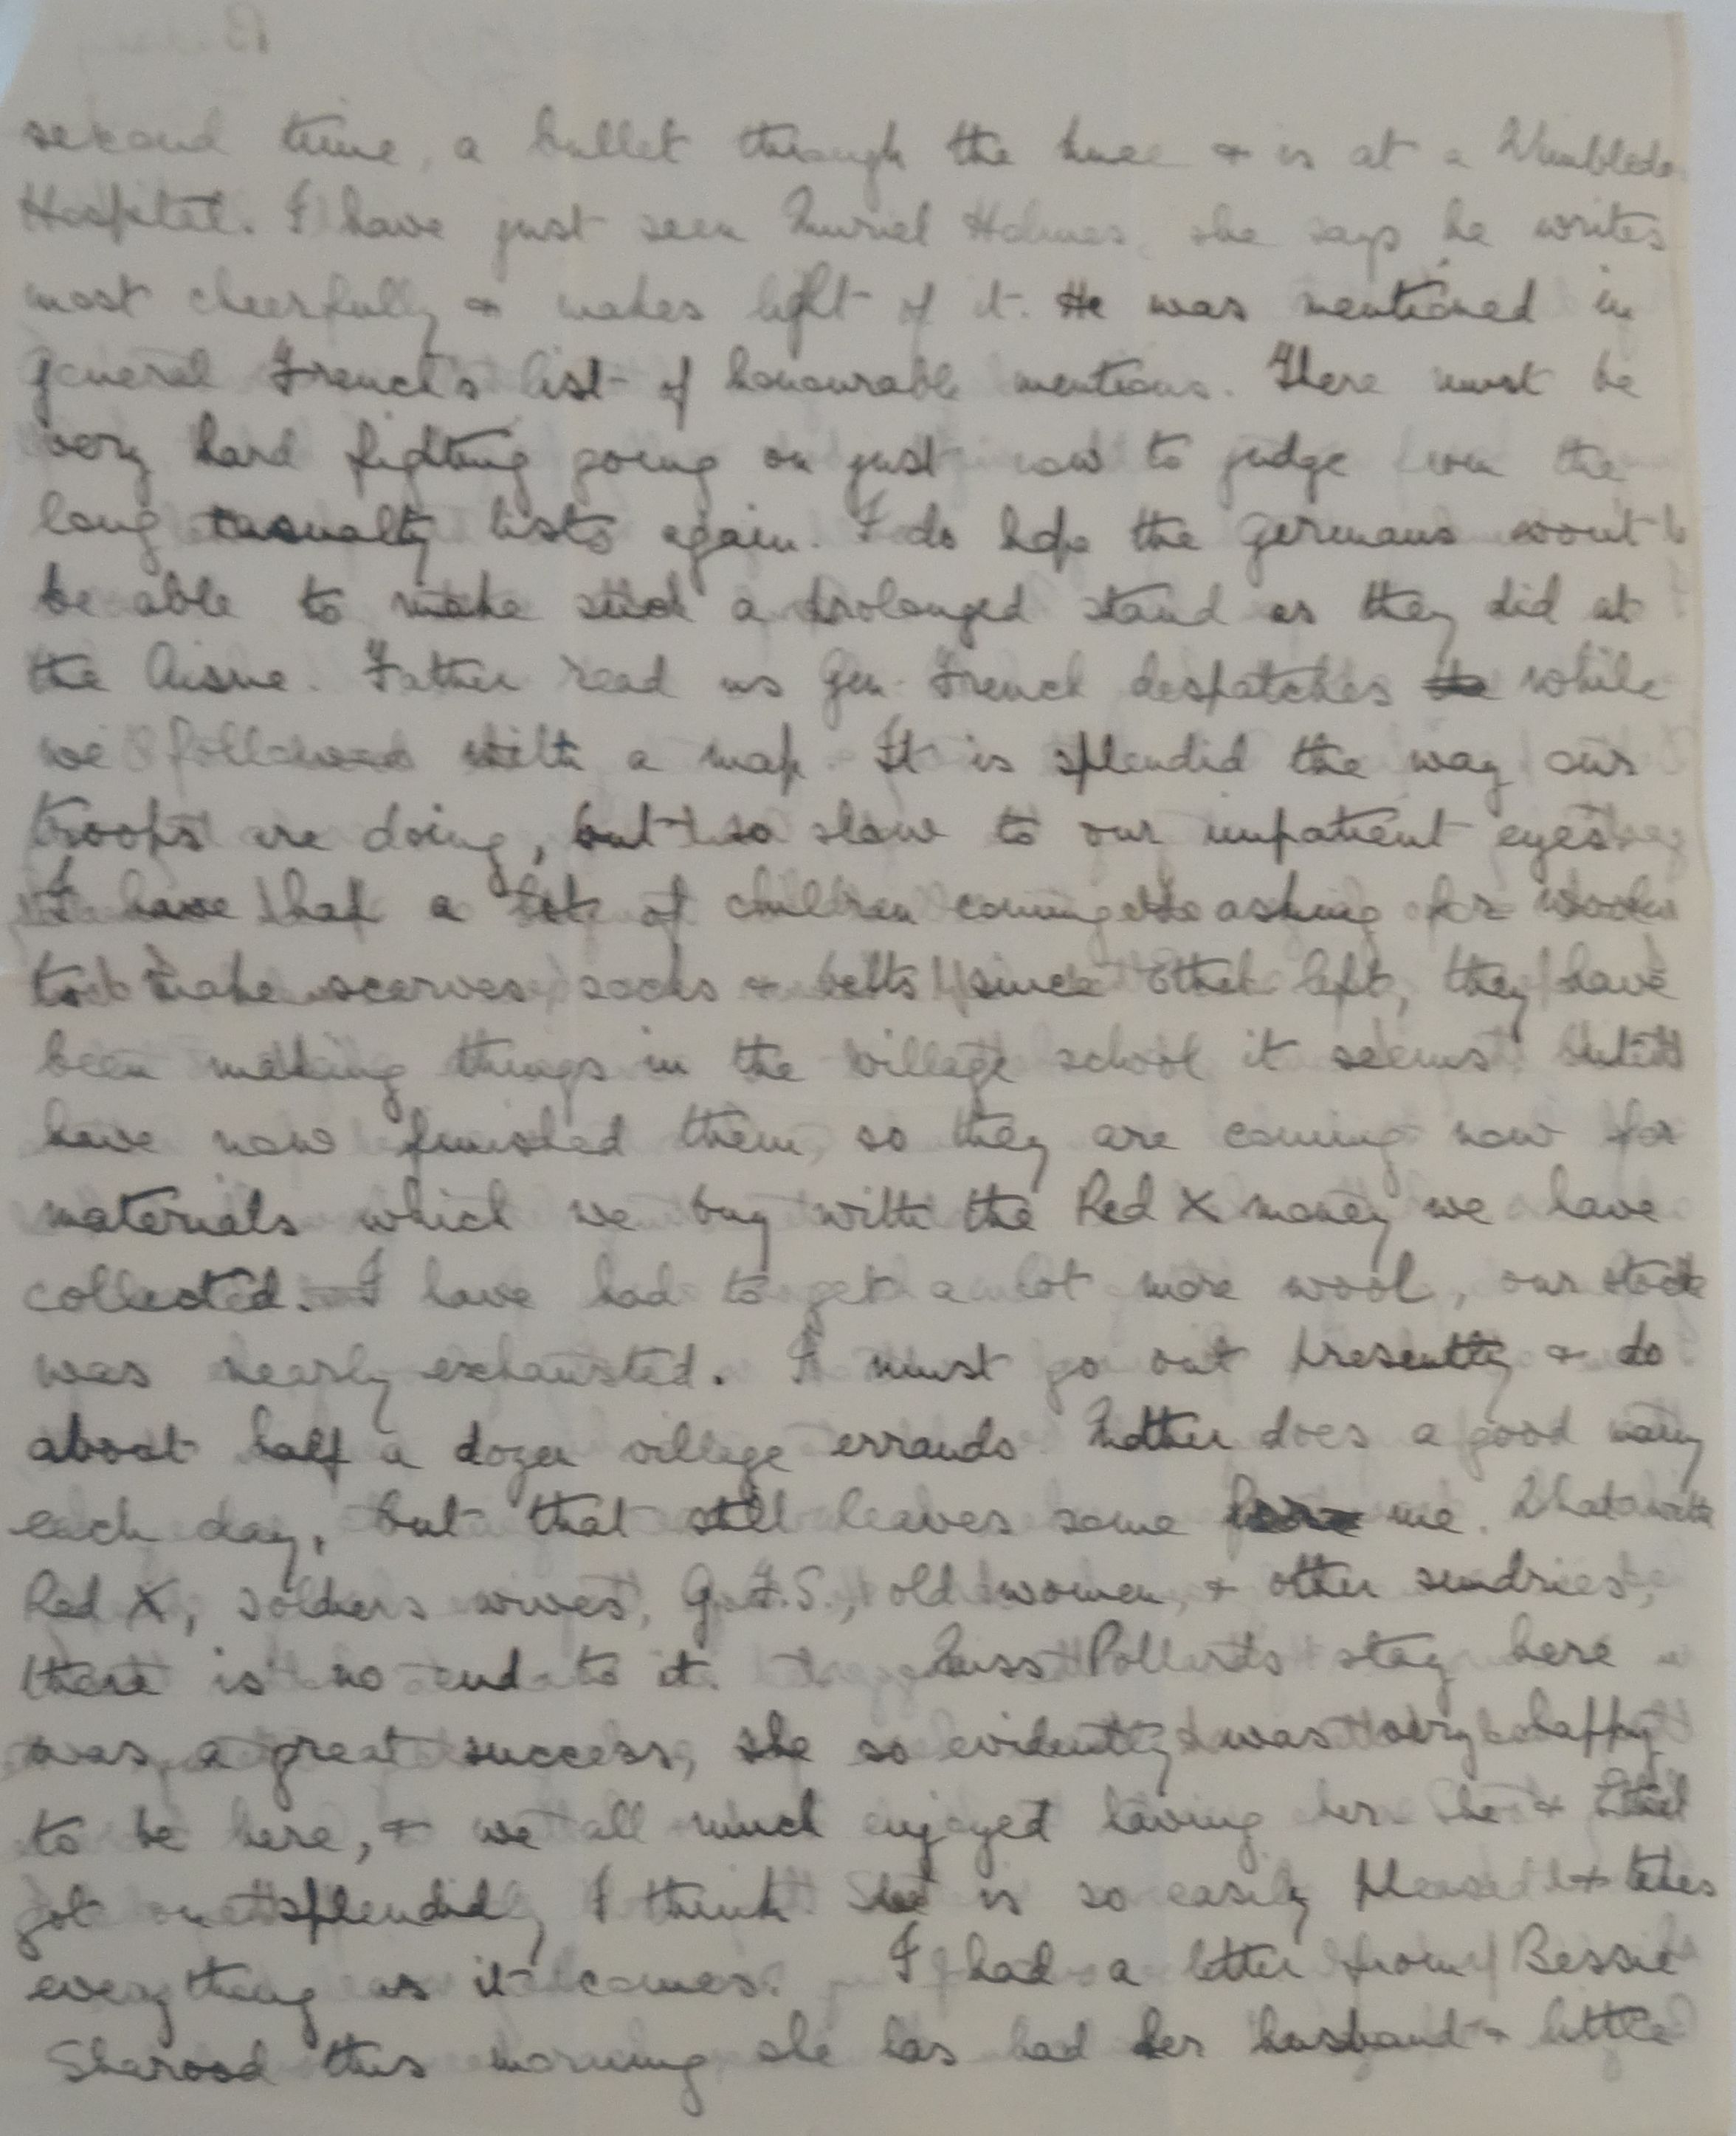 second time, a bullet through the knee & is at a Wimbledon
Hospital. I have just seen Muriel Holmes, she says he writes
most cheerfully & makes light of it. He was mentioned in
General French's list of honourable mentions. There must be
very hard fighting going on just now to judge from the
long casualty lists again. I do hope the Germans wont
be able to make such a prolonged stand as they did at
the Aisne. Father read us Gen. French despatches while
we followed with a map. It is splendid the way our
troops are doing, but so slow to our impatient eyes
I have had a lot of children coming asking for wool
to make scarves, socks & belts since Ethel left, they have
been making things in the village school it seems but
have now finished them, so they are coming now for
materials which we buy with the Red X money we have
collected. I have had to get a lot more wool, our stock
was nearly exhausted. I must go out presently & do
about half a dozen village errands. Mother does a good many
each day, but that still leaves some for me. What with
Red X, soldiers wives, G.F.S., old women, & other sundries,
there is no end to it. Miss Pollards stay here
was a great success, she so evidently was very happy
to be here, & we all much enjoyed having her. She & Ethel
got on splendidly I think. She is so easily pleased & takes
everything as it comes. I had a letter from Bessie
Sharood this morning, she has had her husband & little